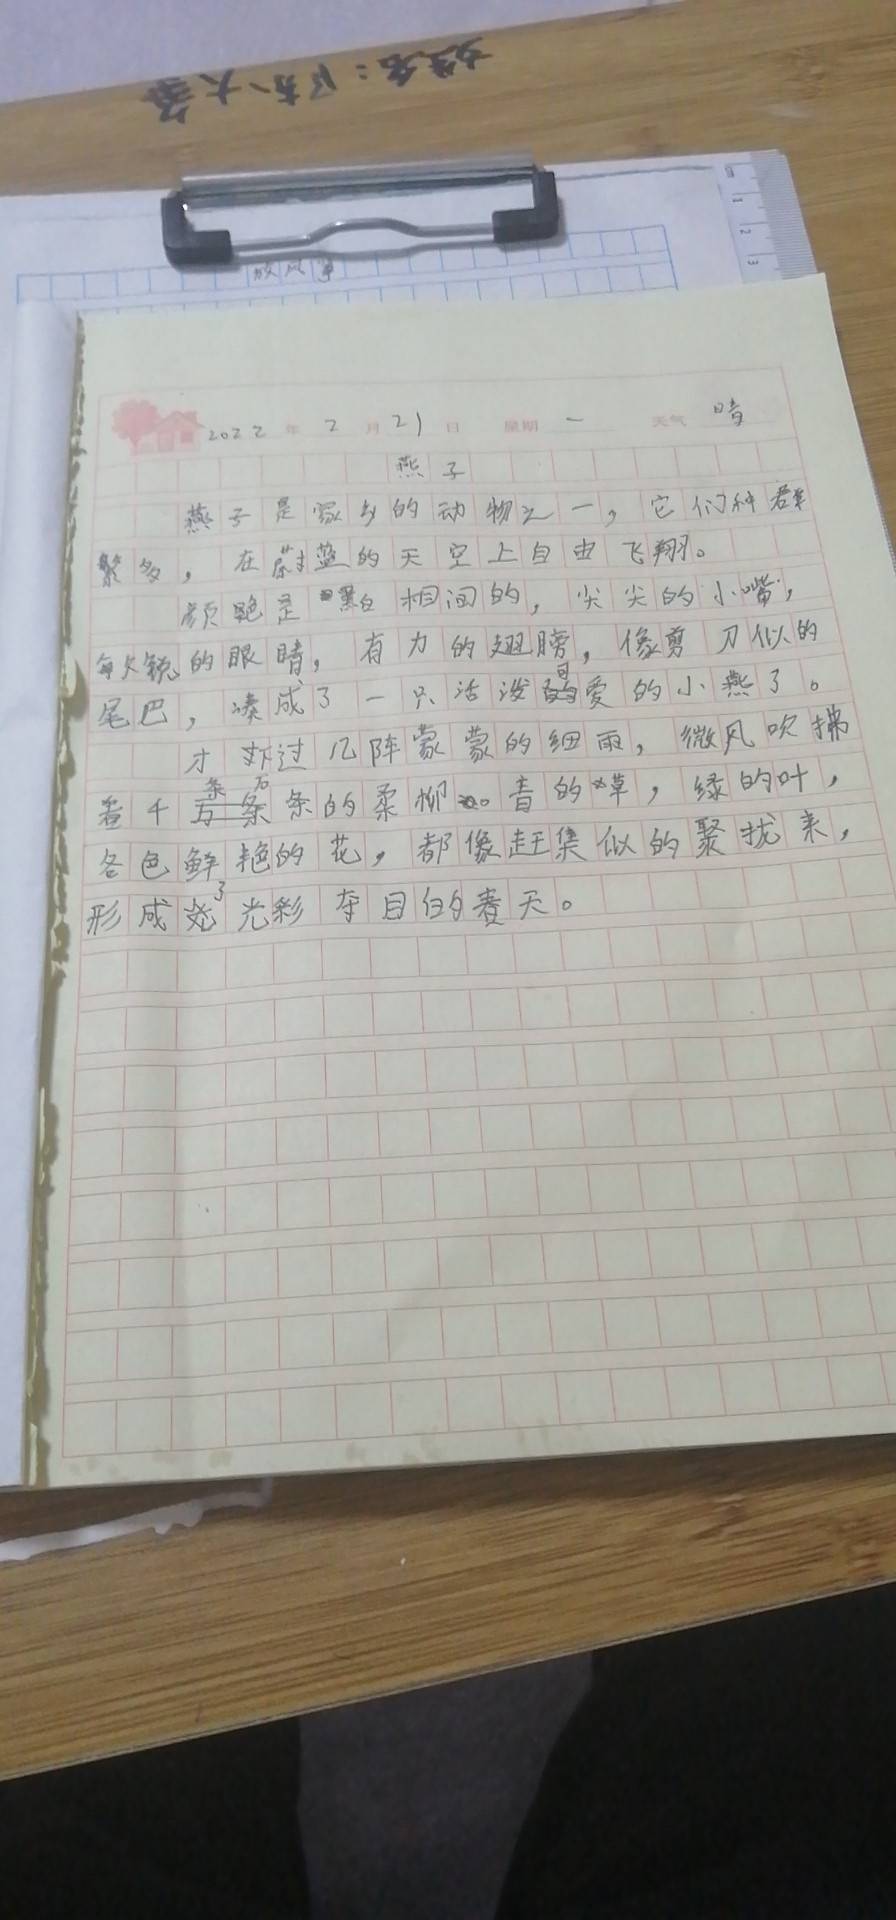 姓名:陈大
0
1
2
3
放风筝
2022 年 2 月 21 日 星期 一 天气 晴
燕子
燕子是家乡的动物之一,它们种群
繁多,在蔚蓝的天空上自由飞翔。
颜艳是黑白相间的,尖尖的小嘴,
敏锐的眼睛,有力的翅膀,像剪刀似的
尾巴,凑成了一只活泼可爱的小燕子。
才刮过几阵蒙蒙的细雨,微风吹拂
着千条万条的柔柳。青的草,绿的叶,
各色鲜艳的花,都像赶集似的聚拢来,
形成了光彩夺目的春天。